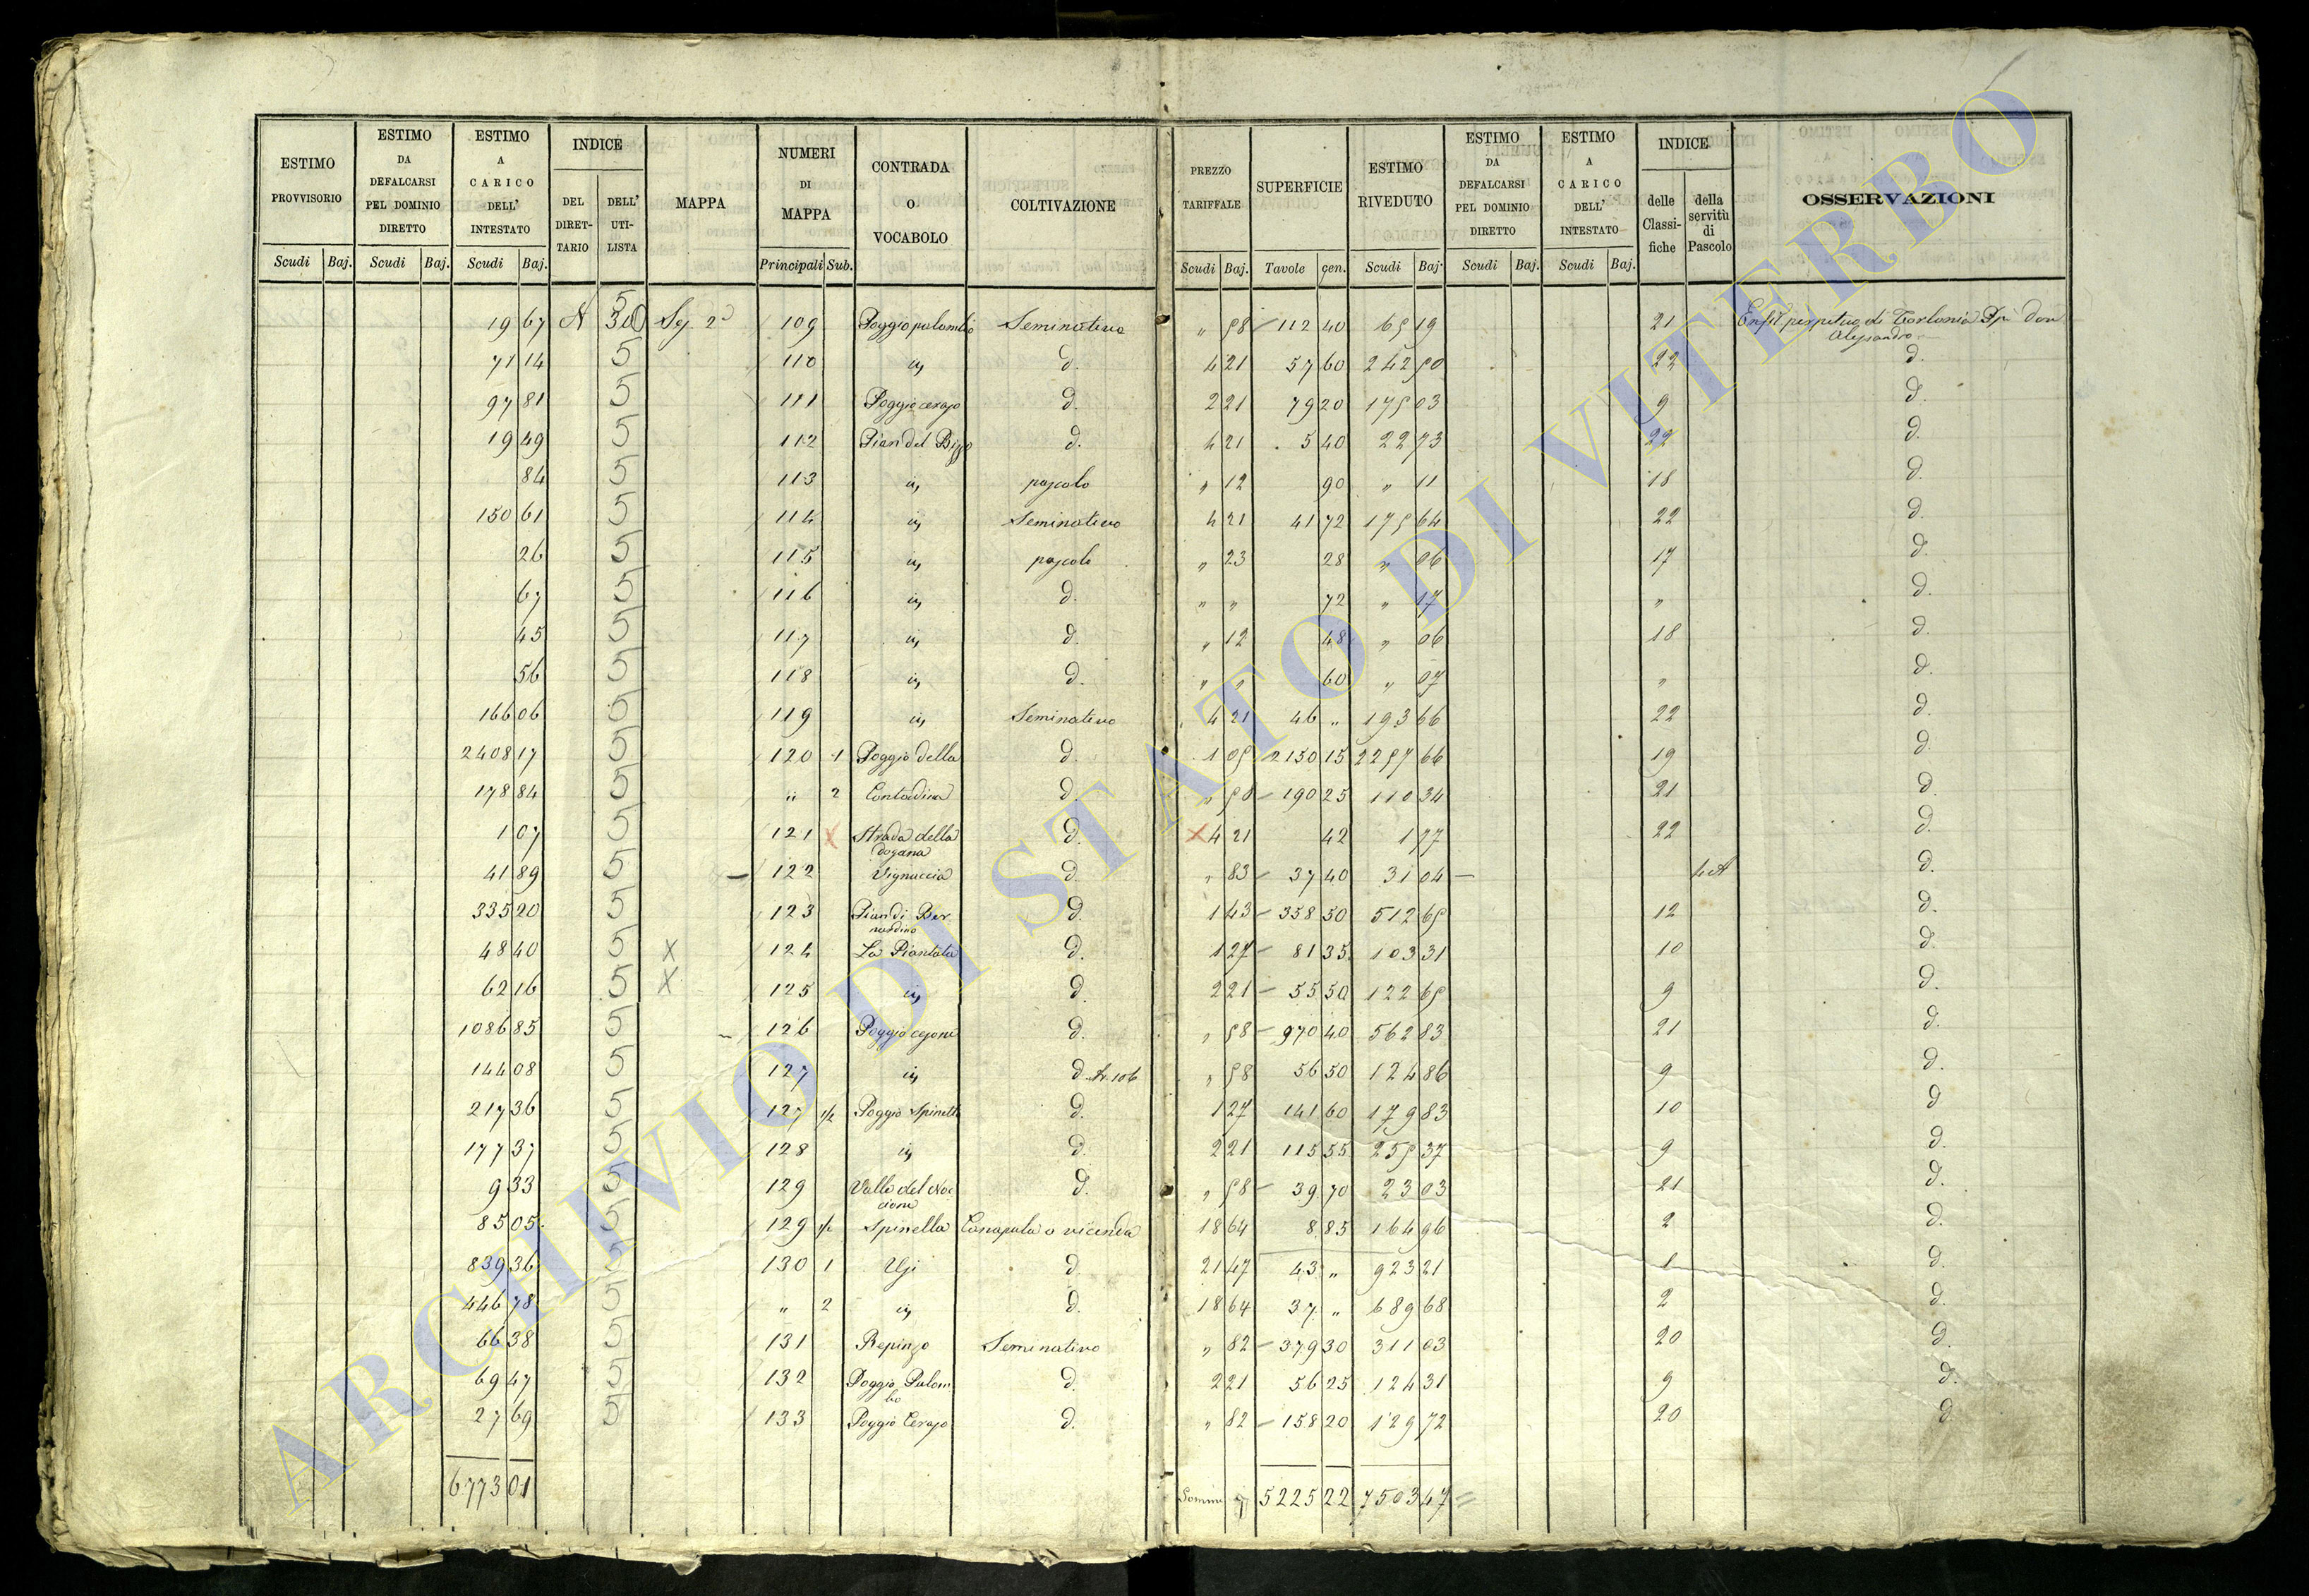 ESTIMO PROVVISORIO | ESTIMO DA DEFALCARSI PEL DOMINIO DIRETTO | ESTIMO A CARICO DELL' INTESTATO | INDICE DEL DIRETTARIO | DELL' UTILISTA | MAPPA | NUMERI DI MAPPA | CONTRADA O VOCABOLO | COLTIVAZIONE | PREZZO TARIFFALE | SUPERFICIE | ESTIMO RIVEDUTO | ESTIMO DA DEFALCARSI PEL DOMINIO DIRETTO | ESTIMO A CARICO DELL' INTESTATO | INDICE delle Classifiche | della servitù di Pascolo | OSSERVAZIONI
Scudi Baj. | Scudi Baj. | Scudi Baj. | Principali Sub. | Scudi Baj. | Tavole cen. | Scudi Baj. | Scudi Baj. | Scudi Baj.
19 67 5 2° 109 Poggio palombo Seminativo " 58 112 40 65 19 21 Enfit perpetua di Torlonia Don
Alessandro
71 14 5 110 d. 4 21 57 60 242 50 22 d.
97 81 5 111 Poggio cerajo d. 2 21 79 20 175 03 9 d.
19 49 5 112 Pian del d. 4 21 5 40 22 73 22 d.
84 5 113 pascolo " 12 90 " 11 18 d.
150 61 5 114 Seminativo 4 21 41 72 175 64 22 d.
26 5 115 pascolo " 23 28 " 06 17 d.
67 5 116 d. " " 72 " 17 " d.
45 5 117 d. " 12 48 " 06 18 d.
56 5 118 d. " " 60 " 07 " d.
166 06 5 119 Seminativo 4 21 46 " 193 66 22 d.
2408 17 5 120 1 Poggio della d. 1 05 2150 15 2257 66 19 d.
178 84 5 " 2 Contadina d. " 58 190 25 110 34 21 d.
1 07 5 121 Strada della d. 4 21 42 1 77 22 d.
dogana
41 89 5 122 Vignaccia d. " 83 37 40 31 04 d.
335 20 5 123 Pian di Ber- d. 1 43 358 50 512 65 12 d.
nardino
48 40 5 X 124 La Piantata d. 1 27 81 35 103 31 10 d.
62 16 5 X 125 d. 2 21 55 50 122 65 9 d.
1086 85 5 126 d. " 58 970 40 562 83 21 d.
144 08 5 127 d. 106 " 58 56 50 124 86 9 d.
217 36 5 127 1/2 Poggio Spinella d. 1 27 141 60 179 83 10 d
177 37 5 128 d. 2 21 115 55 255 37 9 d.
9 33 5 129 Valle del d. " 58 39 70 23 03 21 d.
85 05 5 129 1/2 Spinella Canapula a vicenda 18 64 8 85 164 96 2 d.
839 36 5 130 1 d. 21 47 43 " 923 21 1 d.
446 78 5 " 2 d. 18 64 37 " 689 68 2 d.
66 38 5 131 Seminativo " 82 379 30 311 03 20 d.
69 47 5 132 Poggio Palom- d. 2 21 56 25 124 31 9 d.
bo
27 69 5 133 Poggio Cerajo d. " 82 158 20 129 72 20 d
6773 01 5225 22 7503 47
ARCHIVIO DI STATO DI VITERBO